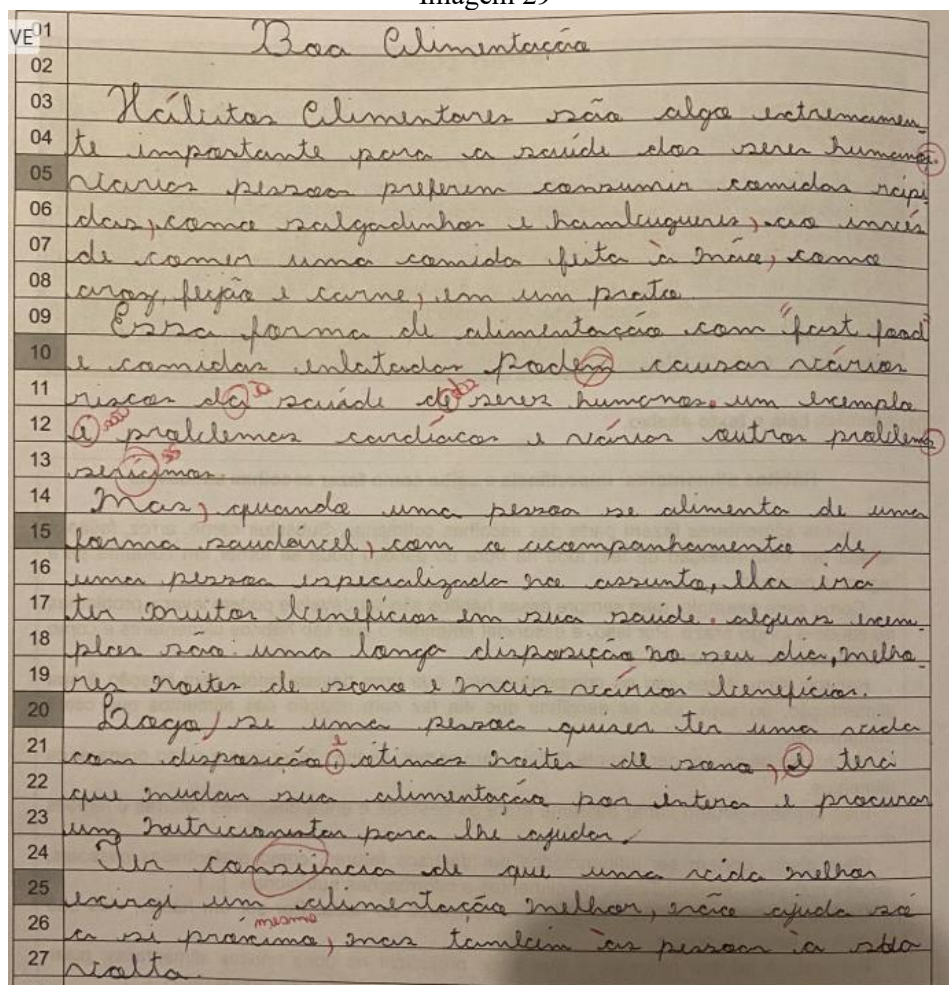 Imagem 29
VE
01 Boa Alimentação
02
03 Hábitos Alimentares são algo extremamen-
04 te important para a saúde dos seres humanos.
05 varias pessoas preferem consumir comidas rápi
06 das, como salgadinhos e hambugueres, ao invés
07 de comer uma comida feita à mão, como
08 arroz, feijão e carne, em um prato.
09 Essa forma de alimentação com "fast food"
10 e comidas enlatadas podem causar vários
11 riscos da saúde de seres humanos. um exemplo
12 é problemas cardíacos e vários outros problema
13 serícimos.
14 Mas, quando uma pessoa se alimenta de uma
15 forma saudável, com o acompanhamento de
16 uma pessoa especializada no assunto, Ela irá
17 ter muitos benefícios em sua saúde. alguns exem-
18 plos são: uma longa disposição no seu dia, melho-
19 res noites de sono e mais vários benefícios.
20 Logo, se uma pessoa quiser ter uma vida
21 com disposição i ótimas noites de sono, e terá
22 que mudar sua alimentação por intera e procurar
23 um nutricionistar para lhe ajudar.
24 Ter consiência de que uma vida melhor
25 exirgi um alimentação melhor, não ajuda só
mesmo
26 a si próximo, mas também às pessoas à sua
27 volta.